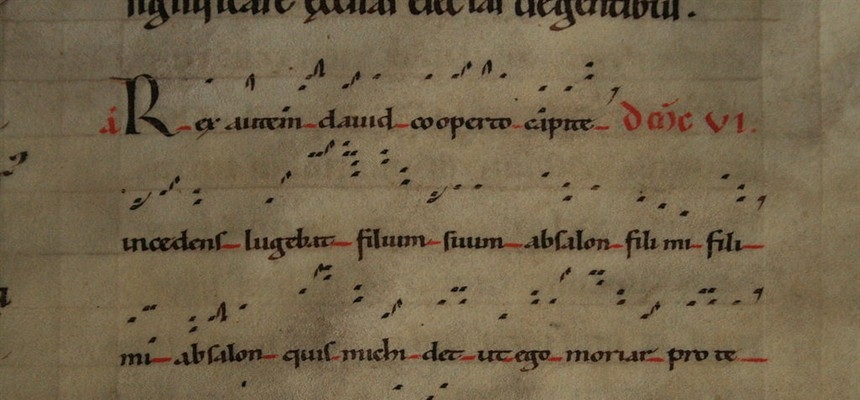 significare degentibus.
a Rex autem dauid cooperto capite
incedens lugebat filium suum absalon fili mi fili
mi absalon quis michi det ut ego moriar pro te